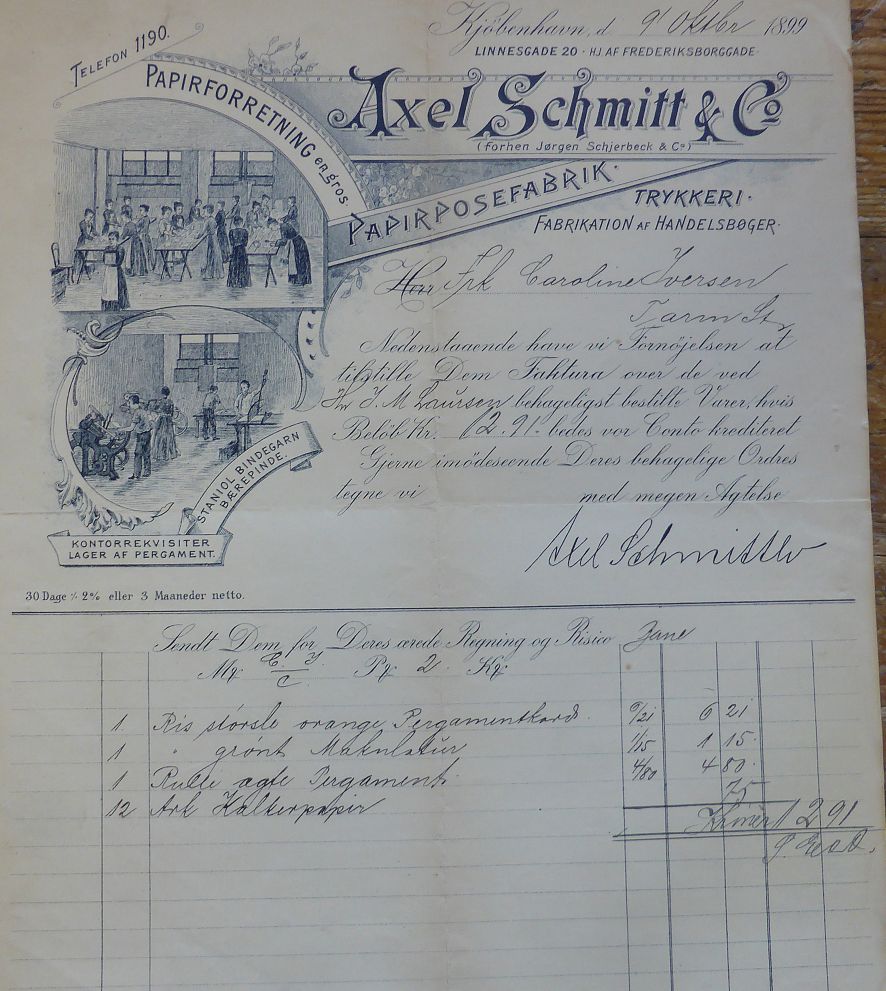 Kjøbenhavn, d. 9' Oktbr 1899
LINNESGADE 20 · HJ. AF FREDERIKSBORGGADE.
TELEFON 1190.
PAPIRFORRETNING en gros.
Axel Schmitt & Co
(forhen Jørgen Schjerbeck & Co)
PAPIRPOSEFABRIK.
TRYKKERI.
FABRIKATION AF HANDELSBØGER.
Herr Frk Caroline Iversen
Tarm St
Nedenstaaende have vi Fornøjelsen at
tilstille Dem Faktura over de ved
Hr J. M. Laursen behageligst bestilte Varer, hvis
Beløb Kr. 12. 91. bedes vor Conto krediteret
Gjerne imødeseende Deres behagelige Ordres
tegne vi med megen Agtelse
Axel Schmitt & Co
STANIOL BINDEGARN
BÆREPINDE.
KONTORREKVISITER
LAGER AF PERGAMENT.
30 Dage ÷ 2% eller 3 Maaneder netto.
Sendt Dem for Deres ærede Regning og Risico
Mk C. I. Pk 2. Kf.
C
1 Ris største orange Pergamentkard. 6 21
1 " grønt Makulatur 1/15 1 15.
1 Rulle ægte Pergament. 4/80 4 80.
12 Ark 75
Kroner 12 91